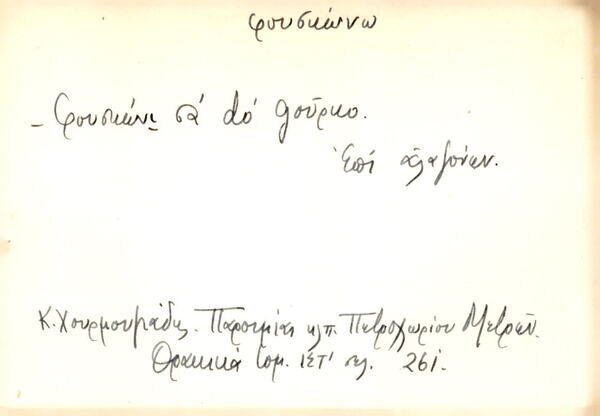 φουσκώνω
- Φουσκώνει σα' dό gοῦρκο.
Ἐπί ἀλαζόνων.
Κ. Χουρμουζιάδης. Παροιμίαι κλπ. Πετροχωρίου Μετρῶν.
Θρακικά τομ. ΙΣΤ' σελ. 261.